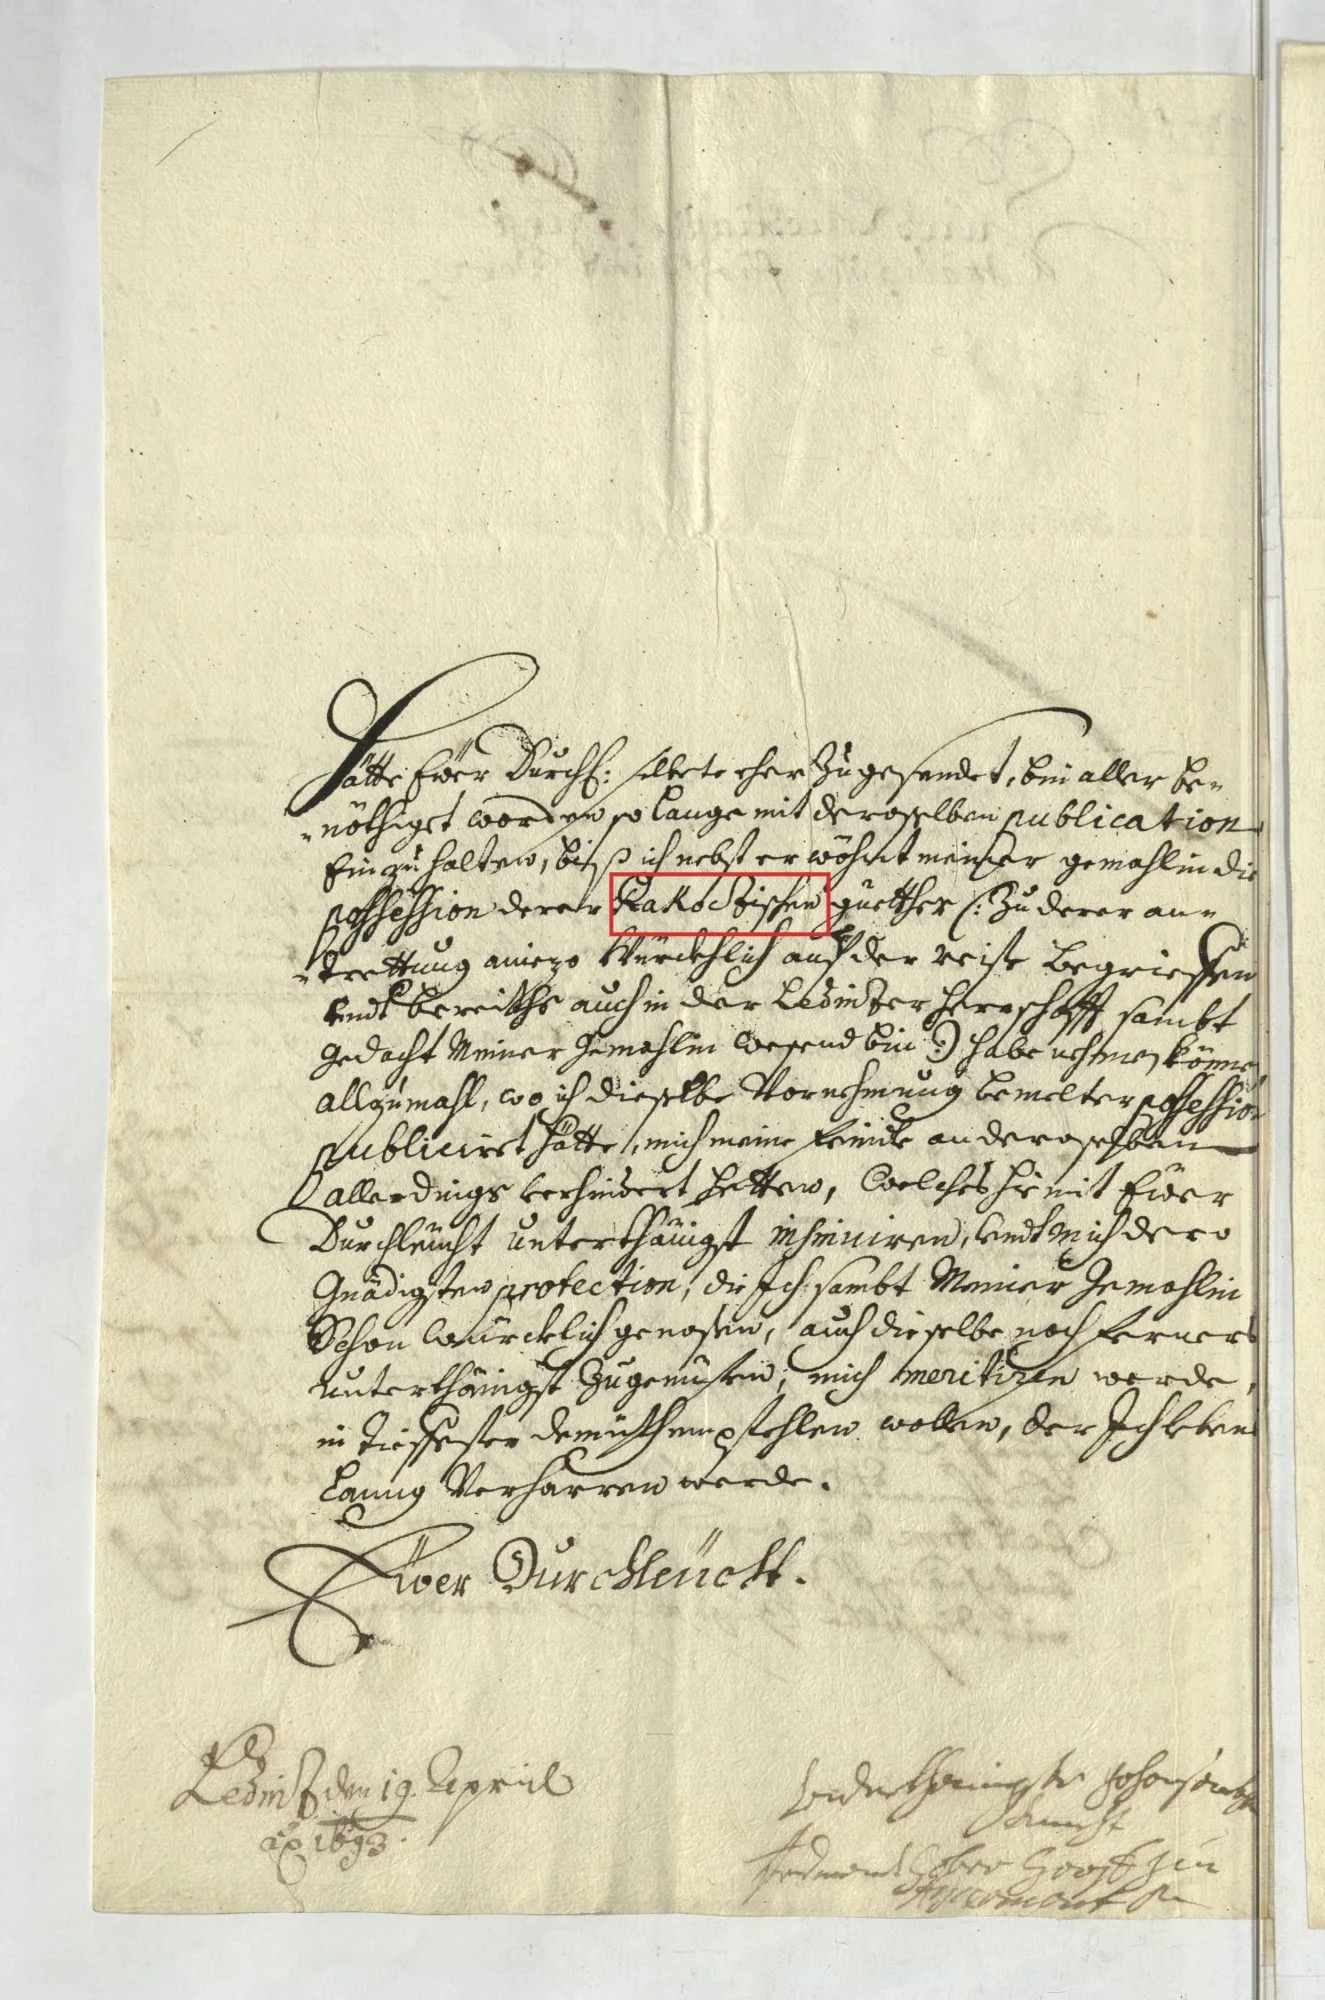 Hätte Ewer Durchl: selbte eher Zugesendet, bin aller be=
=nöthiget worden so lange mit deroselben publication
Einzuhalten, biß ich nebst erwöhnt meiner gemahlin die
possession derer Rakoczischen guetther (: Zu derer an=
=trettung aniezo Würckhlich auf der reise begrieffen
undt bereiths auch in der Ledniczer herrschafft sambt
gedacht Meiner Gemahlin wesend bin :) habe nehmen könne
allzumahl, wo ich dieselbe Vornehmung bemelter possession
publiciret hätte, mich meine feinde an deroselben
allerdings verhindert hetten, Welches hiemit Ewer
Durchleücht unterthänigst insinuiren, undt mich dero
Gnädigsten protection, die Ich sambt Meiner Gemahlin
Schon würcklich genossen, auch dieselbe noch ferners
unterthänigst Zugenüßen, mich meritizen werde,
in Tieffester demuth empfehlen wollen, der Ich leben
lanng Verharren werde.
Ewer Durchleücht.
Lednicz den 19. Aprill
ao 1693.
Underthenigster gehorsambster
knecht
Ferdinandt Gober Graff zu
Aspermont